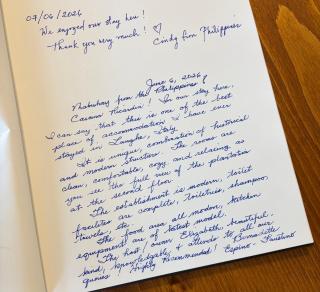 07/06/2026
We enjoyed our stay here!
Thank you very much! ♡
Cindy from Philippines
June 6, 2026
Mabuhay from the Philippines!
Cascina Ricardia! In our stay here,
I can say that this is one of the best
place of accommodation I have ever
stayed in Langhe, Italy.
It is unique, combination of historical
and modern structure. The rooms are
clean, comfortable, cozy, and relaxing as
you see the full view of the plantation
at the second floor.
The establishment is modern, toilet
facilities are complete, toiletries, shampoo,
towels, etc.
The food area all modern, kitchen
equipments are of latest model.
The host/owner Elizabeth, beautiful,
kind, knowledgable & attends to all our
queries! Highly Recommended! Bernadette
Espino - Faustino